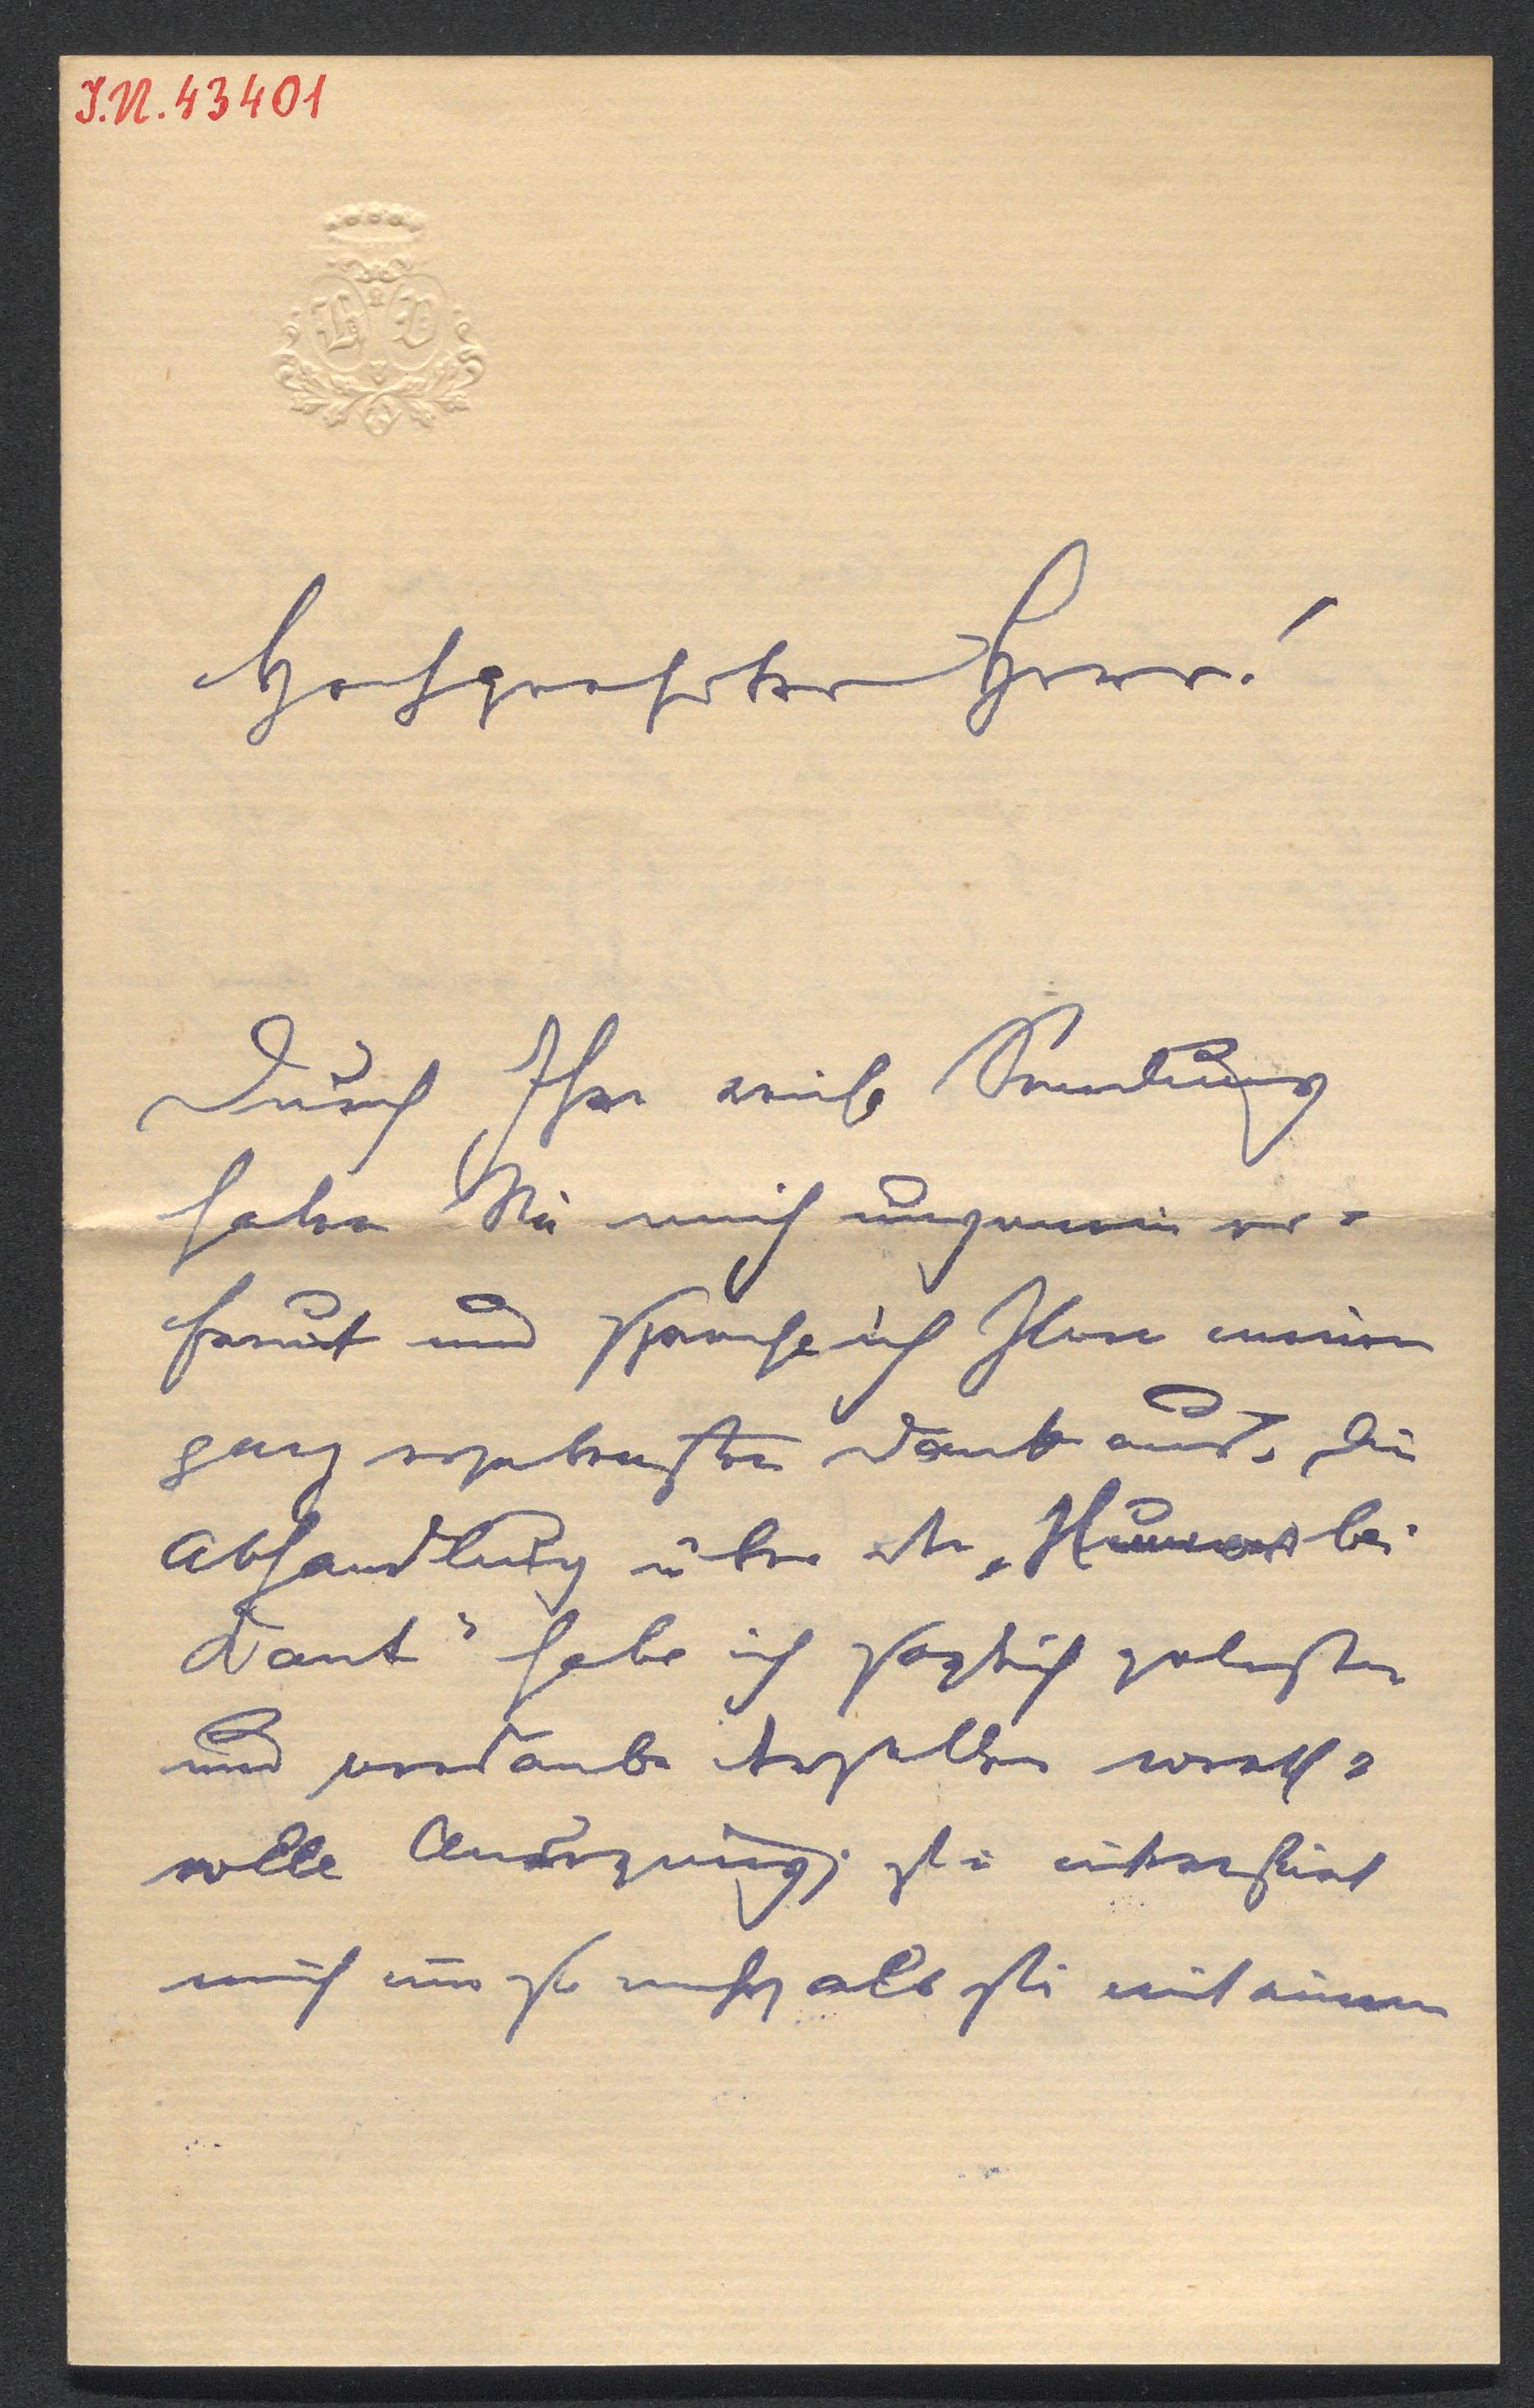 I.N. 43401
Hochgeehrter Herr!
Durch Ihre Sendung
haben Sie mich ungemein er=
freut und spreche ich Ihnen meinen
ganz ergebensten Dank aus. Die
Abhandlung über den „Humor bei
Kant" habe ich sogleich gelesen
und verdanke derselben werth=
volle Anregung; sie interessirt
mich um so mehr, als sie mit einem